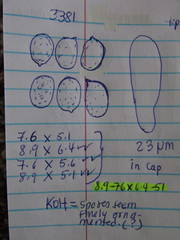 3381
tip
7.6 x 5.1
8.9 x 6.4 ✓✓
7.6 x 5.6 ✓
8.9 x 5.1 ✓✓
23 µm
in cap
8.9-7.6 x 6.4-5.1
KOH = spores seem
finely orna-
mented. (?)